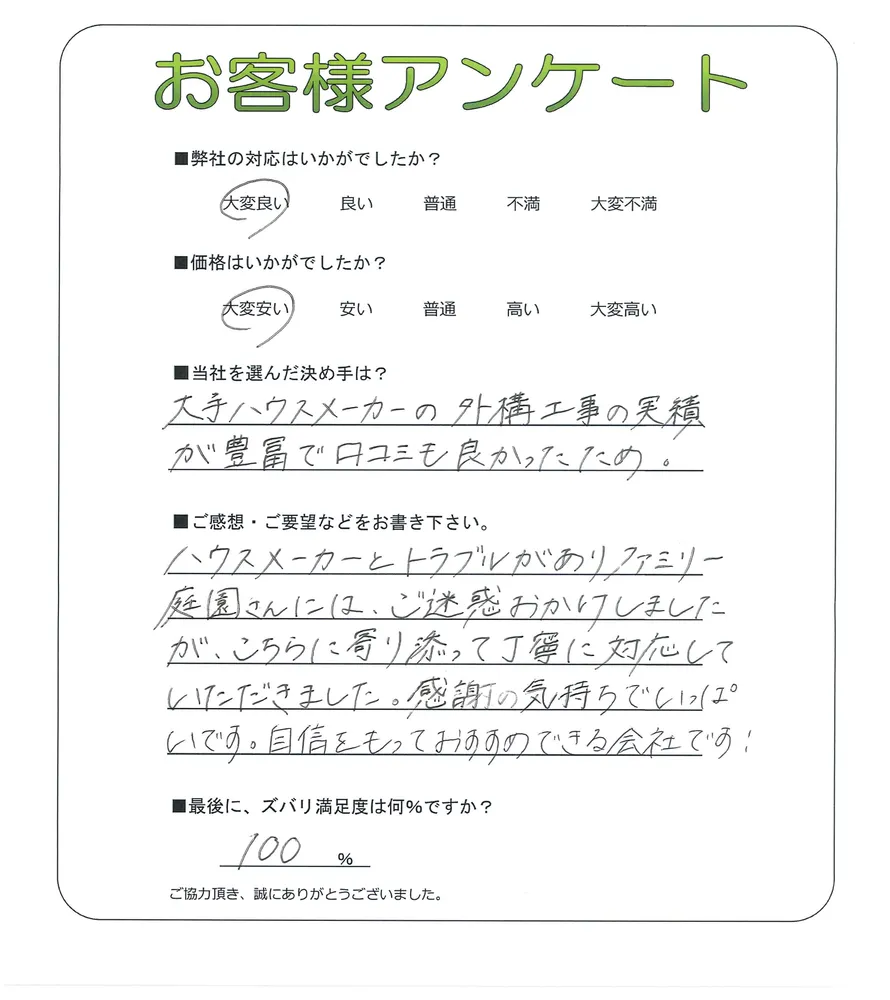 お客様アンケート
■弊社の対応はいかがでしたか？
大変良い 良い 普通 不満 大変不満
■価格はいかがでしたか？
大変安い 安い 普通 高い 大変高い
■当社を選んだ決め手は？
大手ハウスメーカーの外構工事の実績
が豊富で口コミも良かったため。
■ご感想・ご要望などをお書き下さい。
ハウスメーカーとトラブルがありファミリー
庭園さんには、ご迷惑おかけしました
が、こちらに寄り添って丁寧に対応して
いただきました。感謝の気持ちでいっぱ
いです。自信をもっておすすめできる会社です!
■最後に、ズバリ満足度は何％ですか？
100 %
ご協力頂き、誠にありがとうございました。